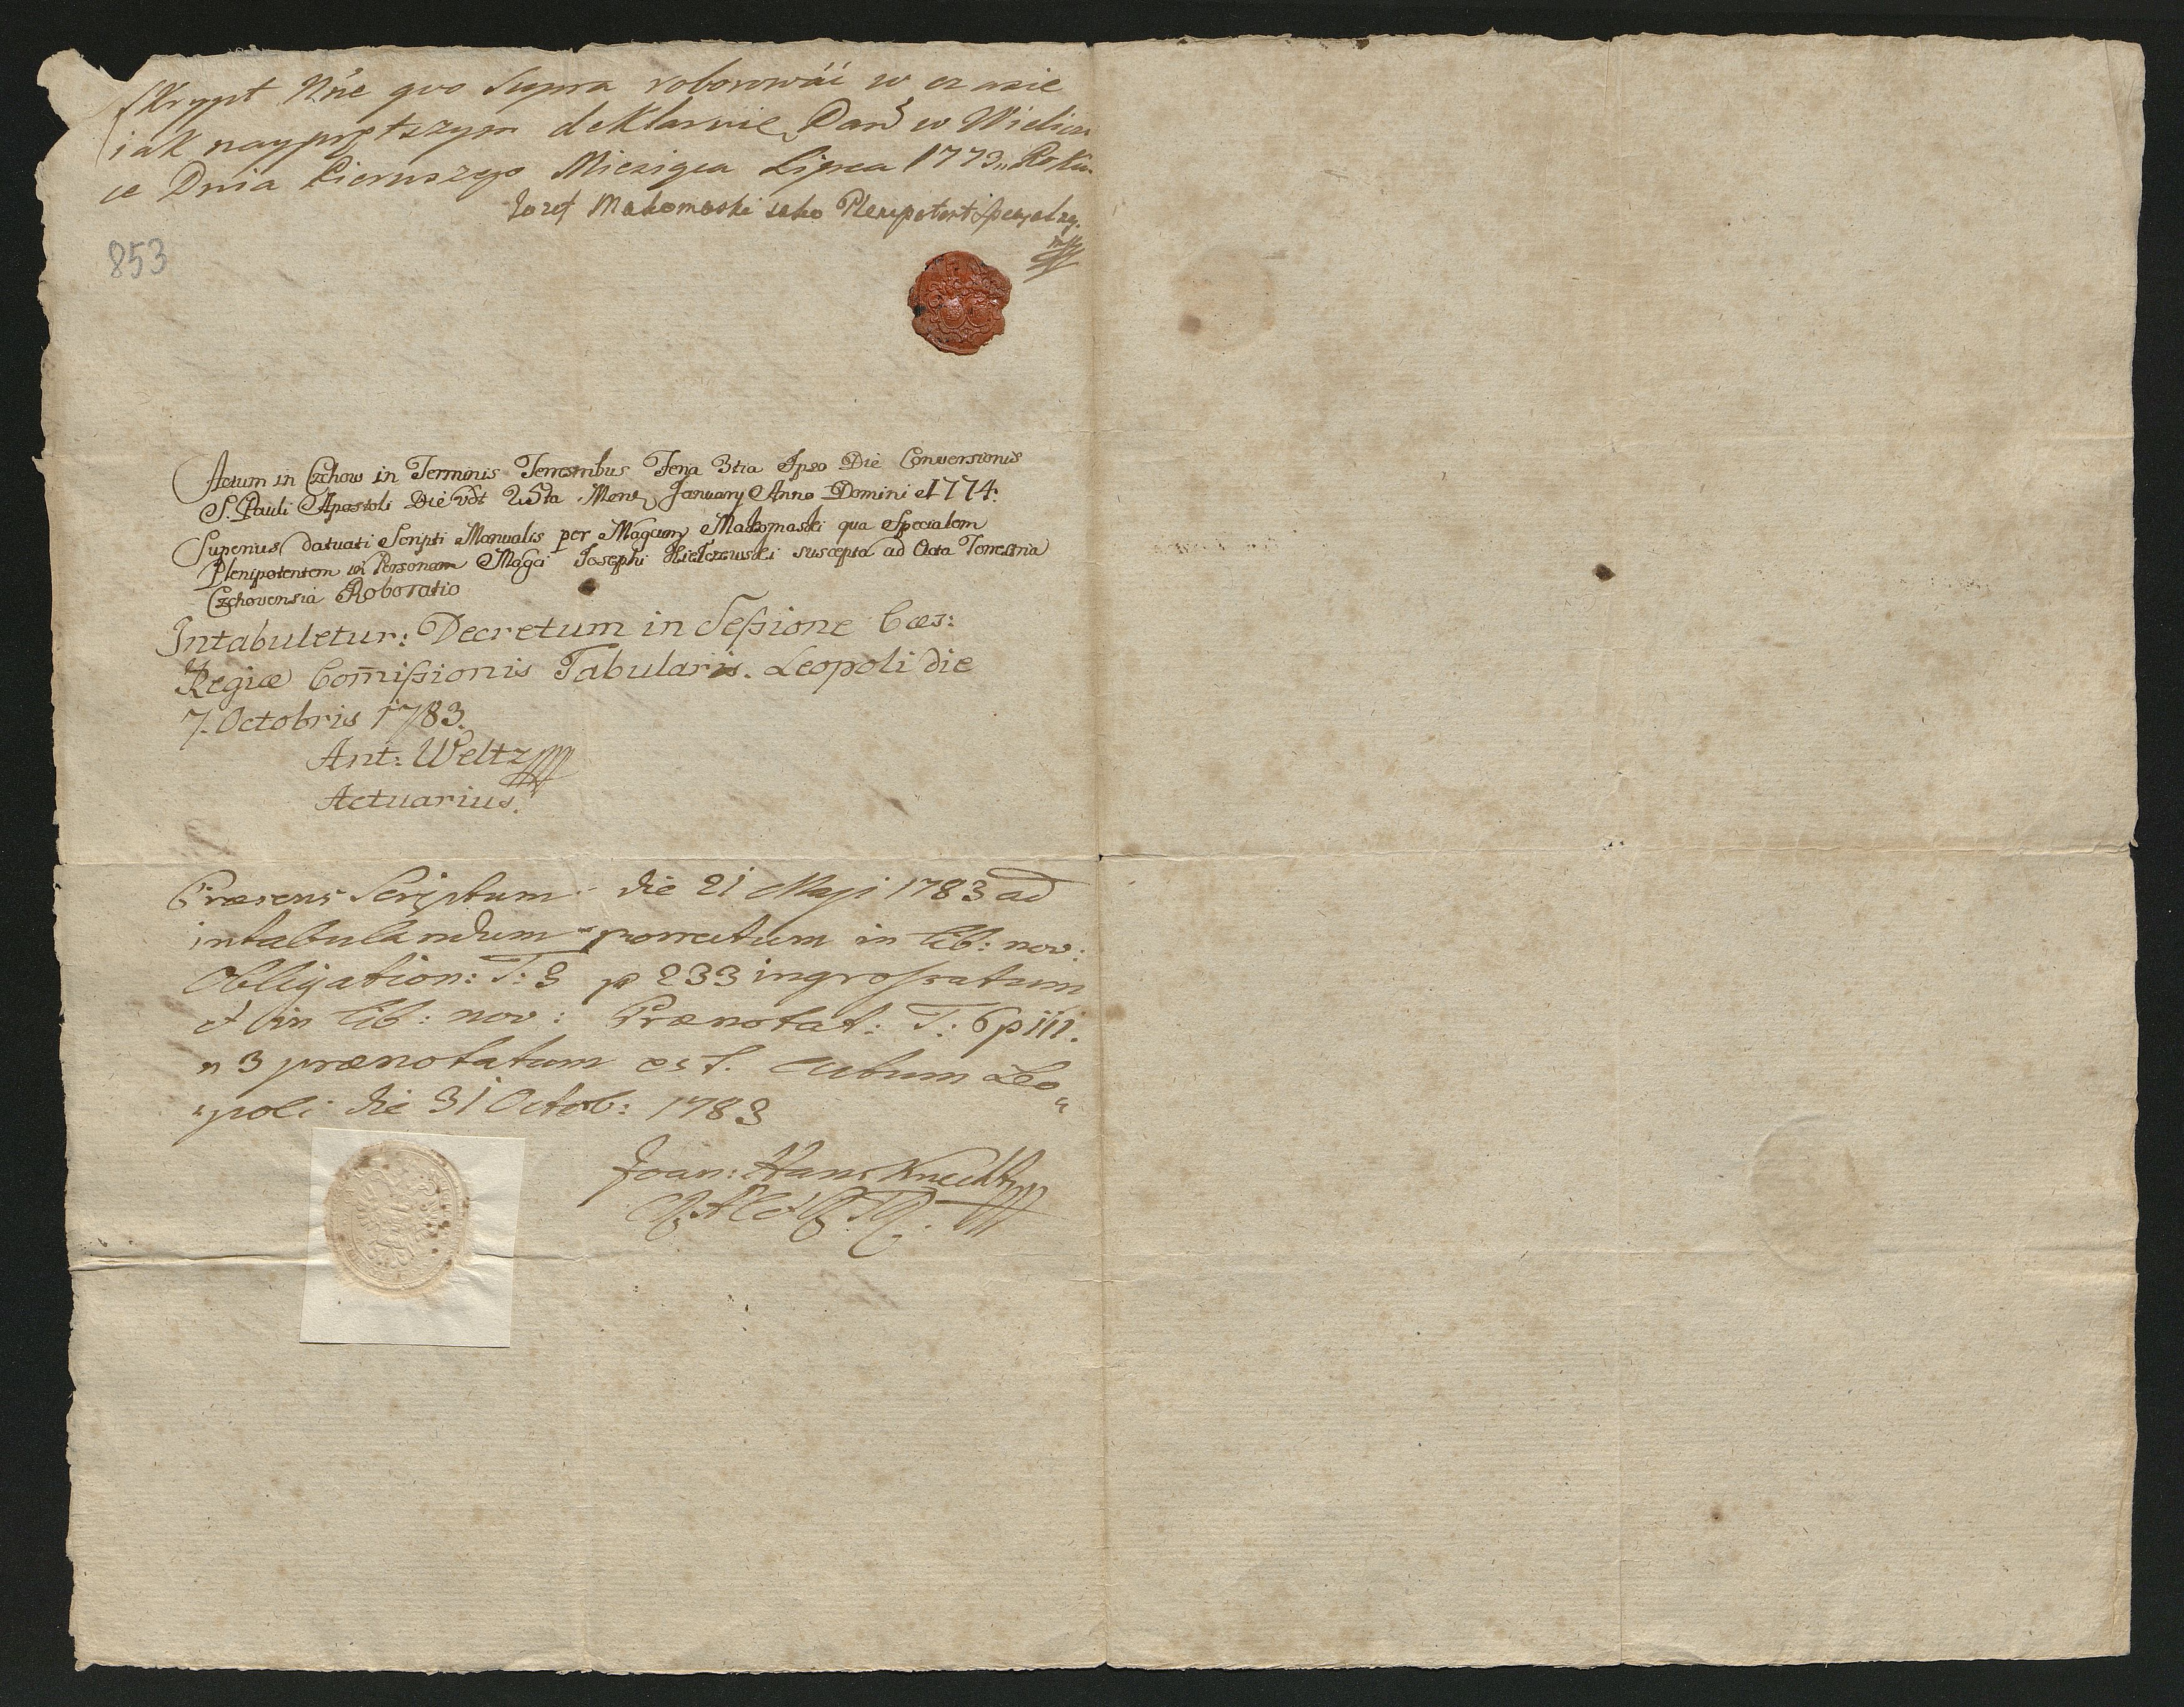 skrypt Nrie quo Supra roborować w czasie
iak nayprętszym deklaruie Dań w Wielicz
ce Dnia Pierwszego Miesiąca Lipca 1773,, Roku
Jozef Makomaski jako Plenipotent specyalny
mpp
853
Actum in Czchow in Terminis Terrestribus Feria 3tia Ipso Die Conversionis
S. Pauli Apostoli Die vdt 25ta Mens January Anno Domini 1774:
Superius datuati Scripti Manualis per Magcum Makomaski qua Specialem
Plenipotentem in Personam Magci Josephi Kielczewski suscepta ad Acta Terrestria
Czchovensia Roboratio
Intabuletur: Decretum in Seßione Cæs:
Regiæ Com̄ißionis Tabularis. Leopoli die
7. Octobris 1783.
Ant: Weltz
Actuarius.
Præsens Scriptum die 21 Maji 1783 ad
intabulandum porrectum in lib: nov:
Obligation: T: 3 p 233 ingrossatum
et in lib: nov: Prænotat: T: 6 p 111.
n 3 prænotatum est. Actum Leo„
„poli die 31 Octob: 1783
Joan: Hans Knecht